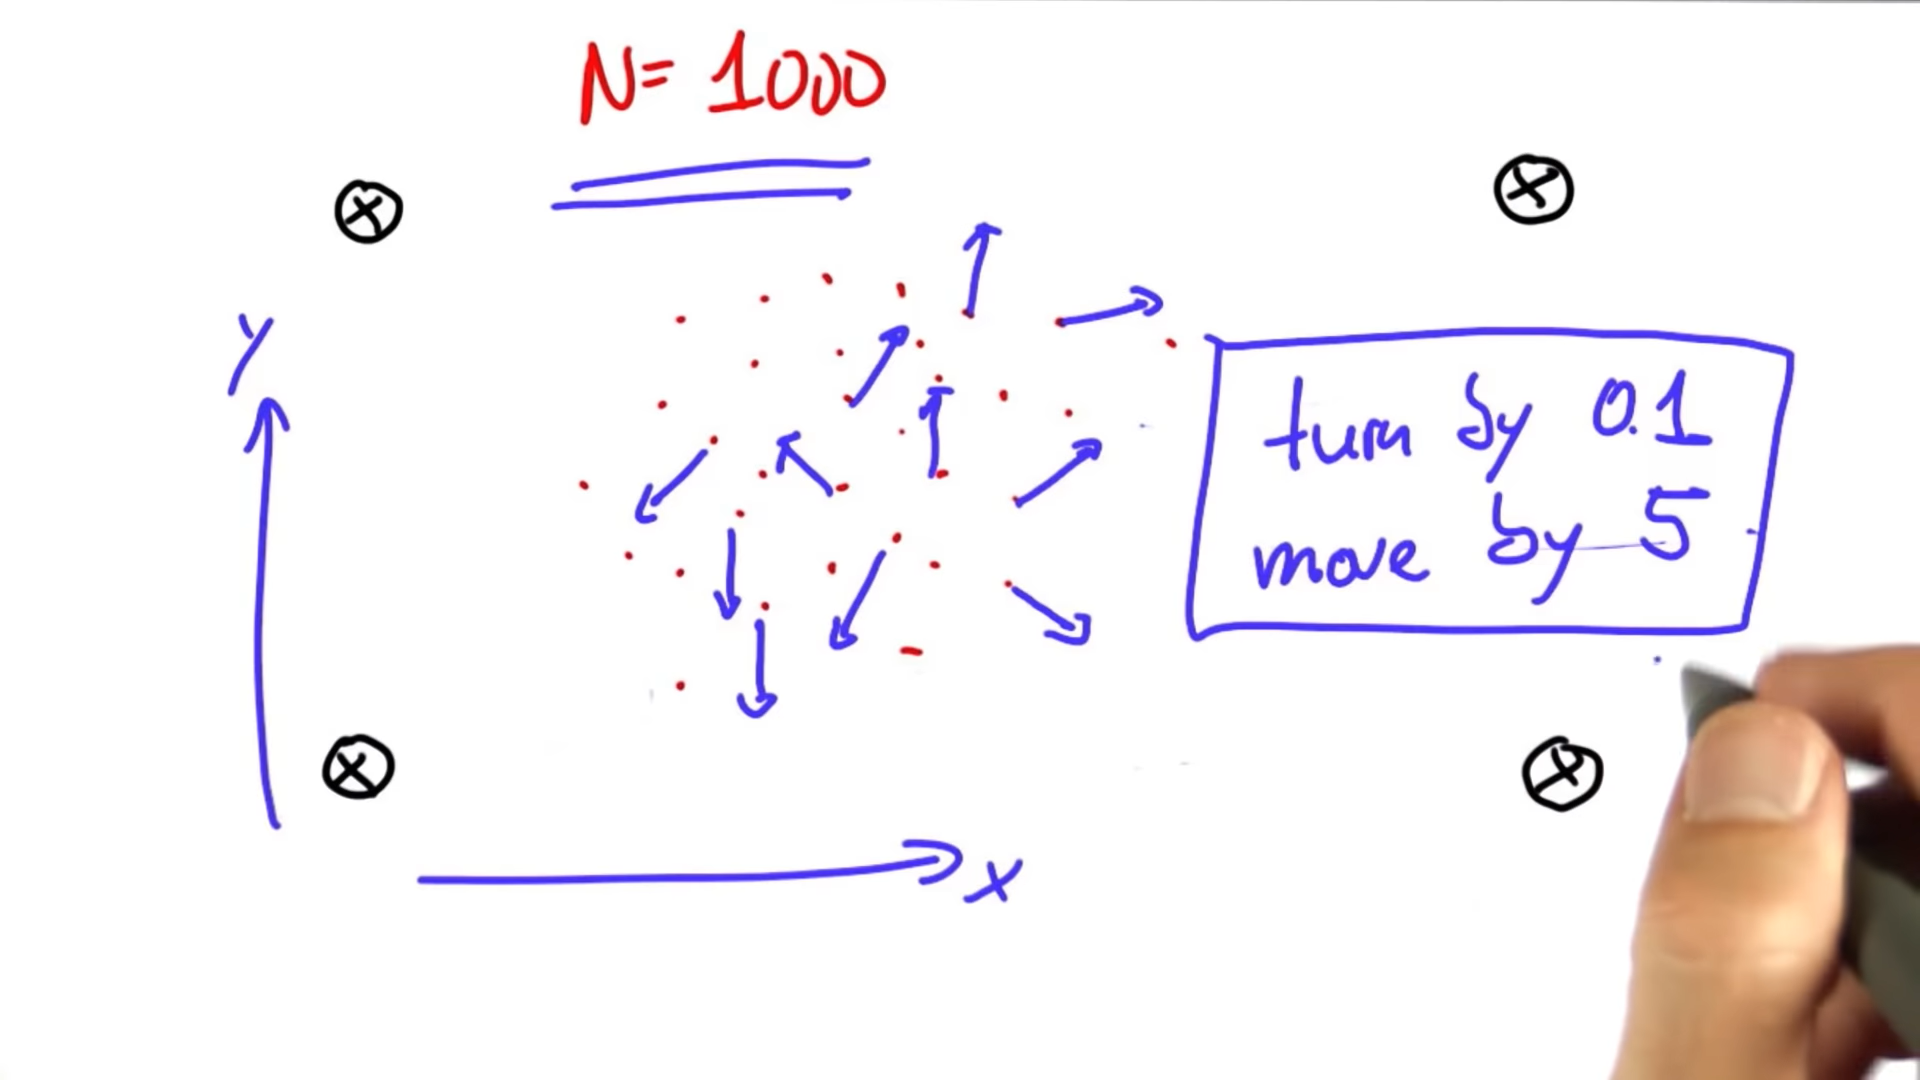 N= 1000
y
turn by 0.1
move by 5
x